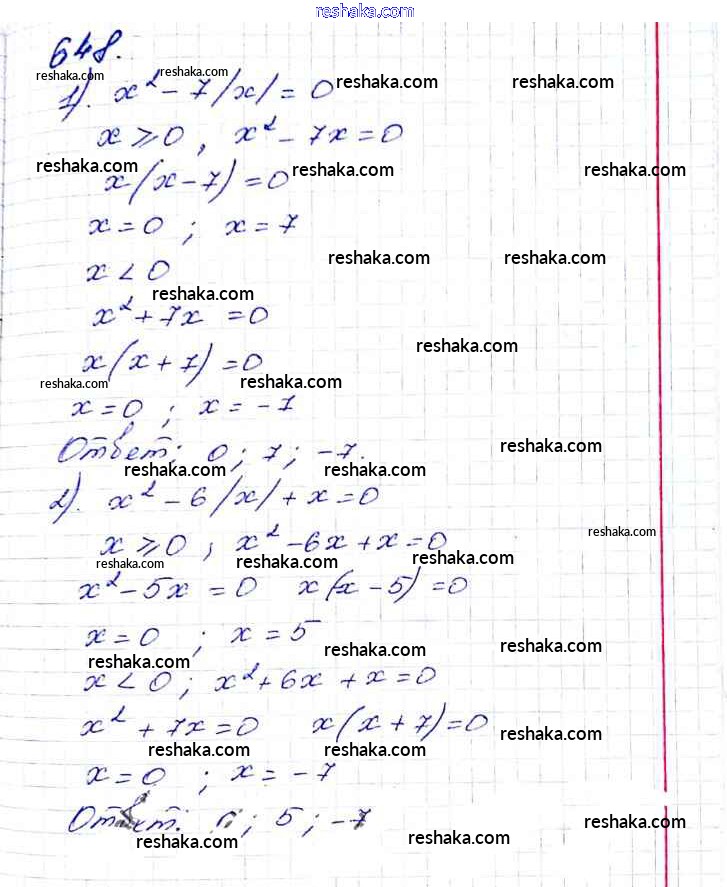 reshaka.com
648.
reshaka.com reshaka.com reshaka.com reshaka.com
1). x² - 7|x| = 0
x ⩾ 0, x² - 7x = 0
reshaka.com reshaka.com
x(x - 7) = 0
x = 0 ; x = 7
reshaka.com reshaka.com
x < 0
reshaka.com
x² + 7x = 0
reshaka.com
x(x + 7) = 0
reshaka.com reshaka.com
x = 0 ; x = -7
Ответ: 0 ; 7 ; -7.
reshaka.com
reshaka.com reshaka.com
2). x² - 6|x| + x = 0
reshaka.com
x ⩾ 0, x² - 6x + x = 0
reshaka.com reshaka.com reshaka.com
x² - 5x = 0 x(x - 5) = 0
x = 0 ; x = 5
reshaka.com reshaka.com reshaka.com
x < 0 ; x² + 6x + x = 0
x² + 7x = 0 x(x + 7) = 0
reshaka.com
reshaka.com reshaka.com
x = 0 ; x = -7
Ответ: 0 ; 5 ; -7
reshaka.com
reshaka.com reshaka.com